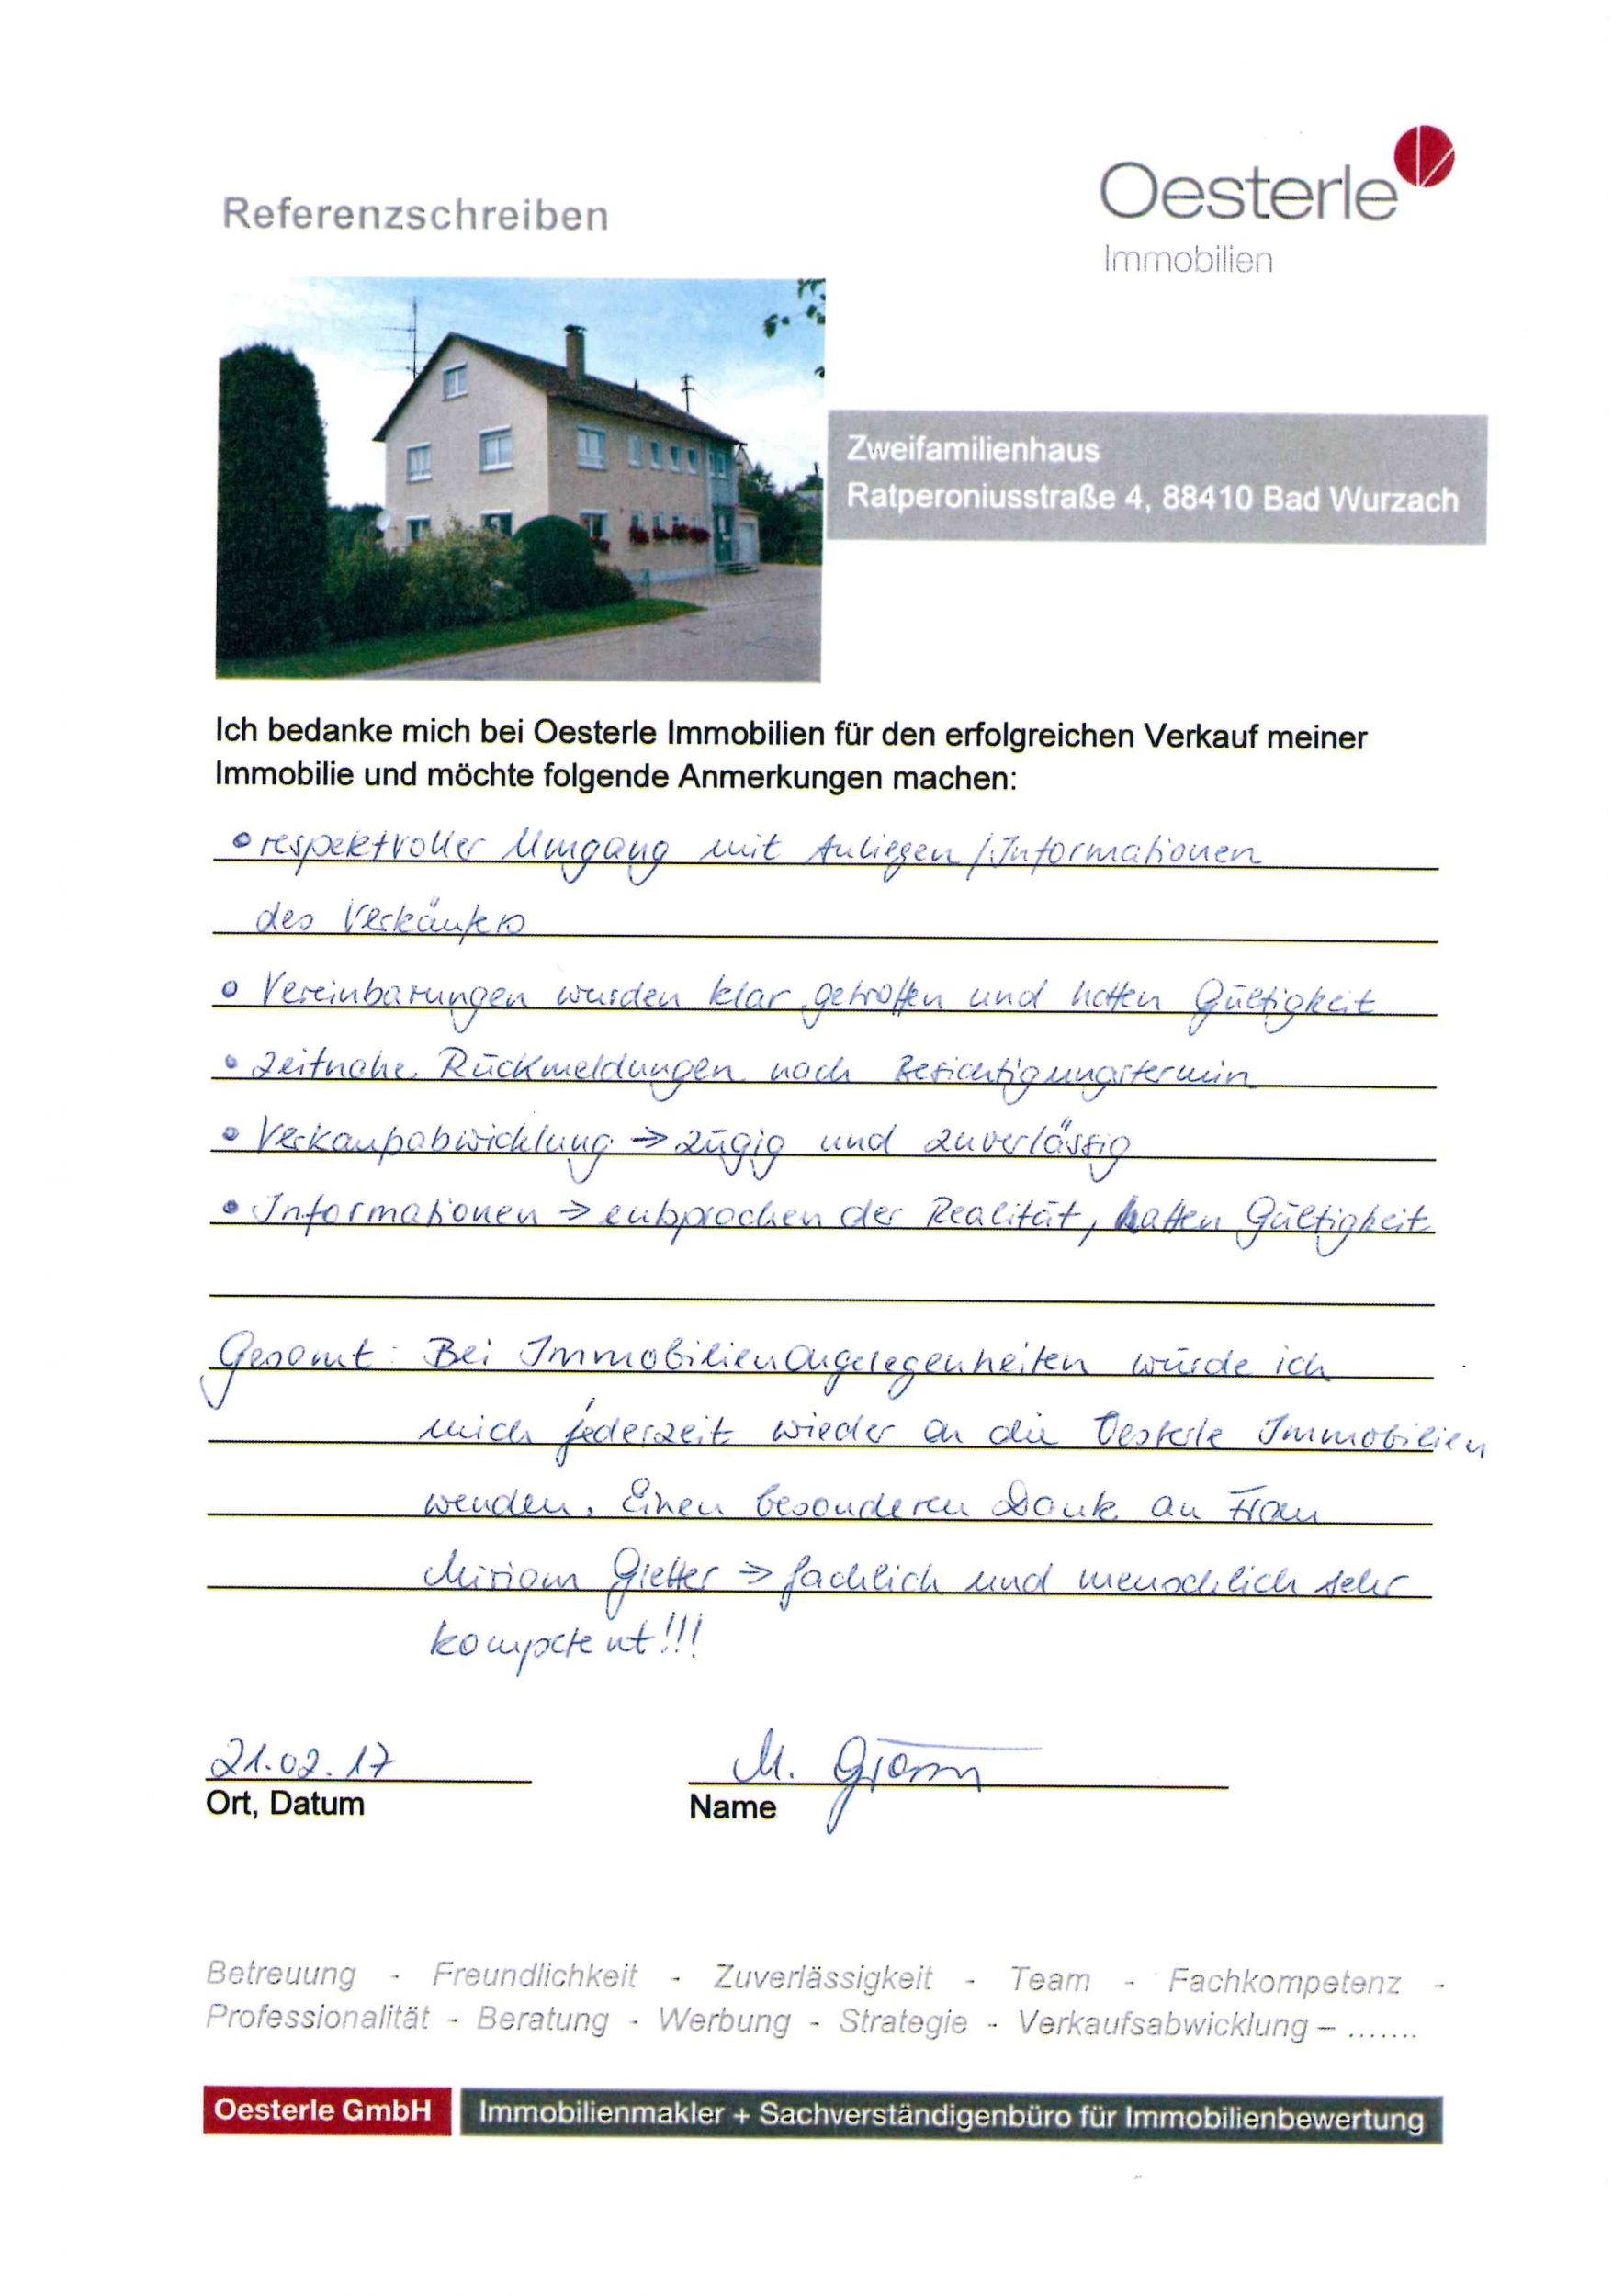 Referenzschreiben
Oesterle
Immobilien
Zweifamilienhaus
Ratperoniusstraße 4, 88410 Bad Wurzach
Ich bedanke mich bei Oesterle Immobilien für den erfolgreichen Verkauf meiner
Immobilie und möchte folgende Anmerkungen machen:
• respektvoller Umgang mit Anliegen/Informationen
des Verkäufers
• Vereinbarungen wurden klar getroffen und hatten Gültigkeit
• zeitnahe Rückmeldungen nach Besichtigungstermin
• Verkaufsabwicklung → zügig und zuverlässig
• Informationen → entsprachen der Realität, hatten Gültigkeit
Gesamt: Bei Immobilienangelegenheiten würde ich
mich jederzeit wieder an die Oesterle Immobilien
wenden. Einen besonderen Dank an Frau
Miriam → fachlich und menschlich sehr
kompetent!!!
21.02.17
M.
Ort, Datum
Name
Betreuung - Freundlichkeit - Zuverlässigkeit - Team - Fachkompetenz -
Professionalität - Beratung - Werbung - Strategie - Verkaufsabwicklung – .......
Oesterle GmbH
Immobilienmakler + Sachverständigenbüro für Immobilienbewertung